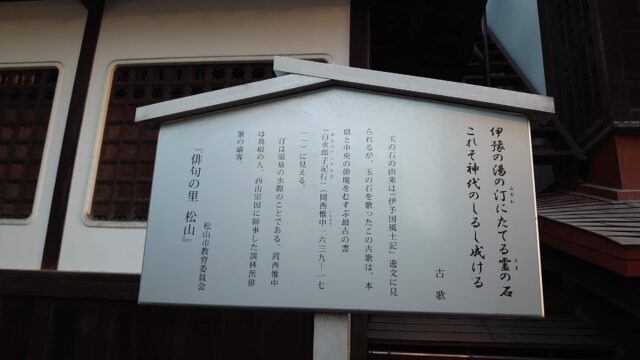 伊豫の湯の汀にたてる霊の石
これそ神代のしるし成ける
古歌
玉の石の由来は『伊予国風土記』逸文に見
られるが、玉の石を歌ったこの古歌は、本
県と中央の俳壇をむすぶ最古の書
『白水郎子記行』(岡西惟中・一六三九―一七
一一)に見える。
汀は温泉の水際のことである。岡西惟中
は鳥取の人、西山宗因に師事した談林派俳
諧の論客。
『俳句の里 松山』
松山市教育委員会